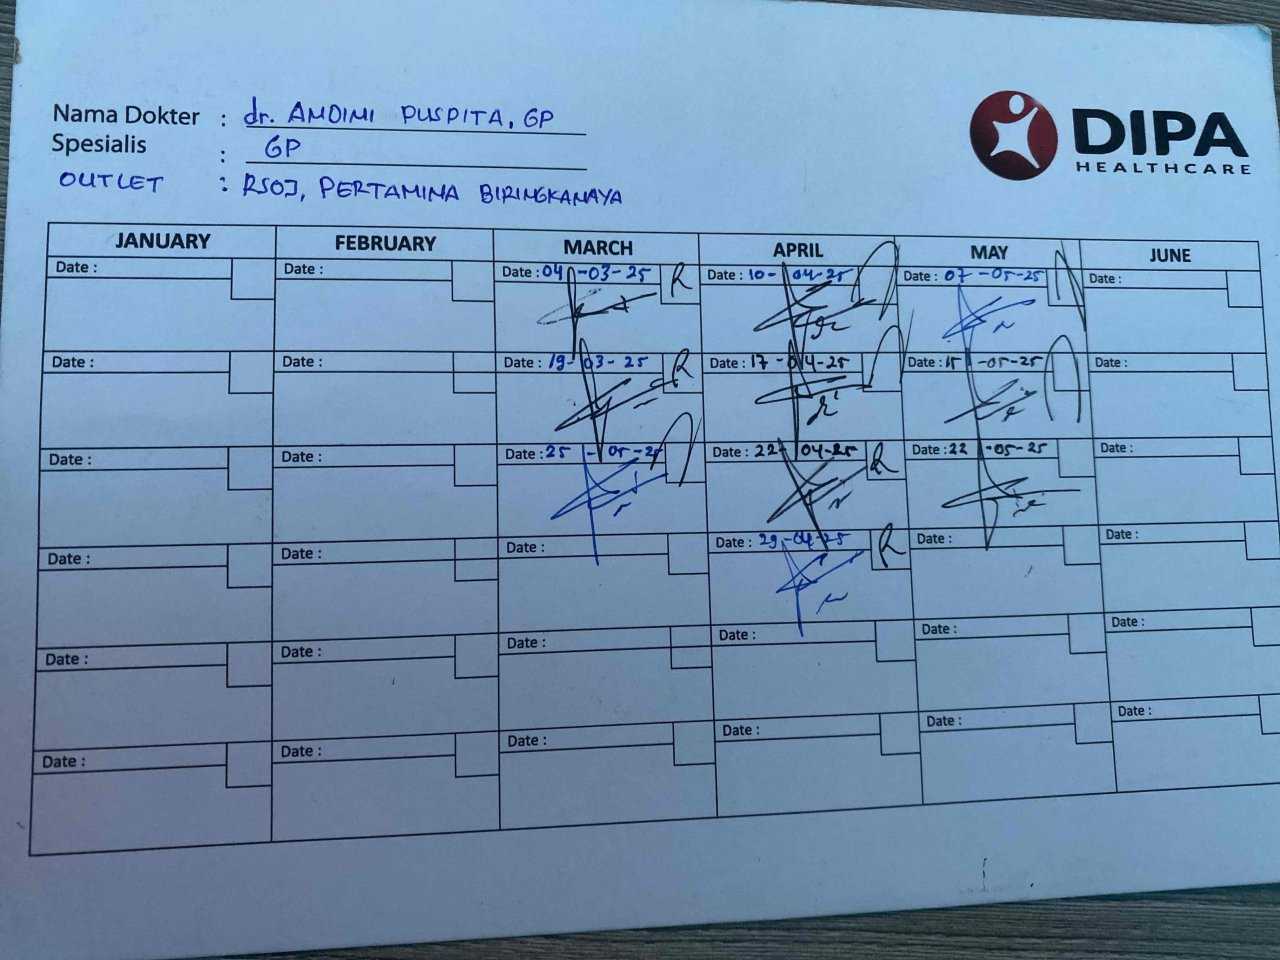 Nama Dokter : dr. ANDINI PUSPITA, GP
Spesialis : GP
OUTLET : RSOJ, PERTAMINA BIRINGKANAYA
DIPA
HEALTHCARE
JANUARY FEBRUARY MARCH APRIL MAY JUNE
Date : Date : Date : 04-03-25 R Date : 10-04-25 Date : 07-05-25 Date :
Date : Date : Date : 19-03-25 R Date : 17-04-25 Date : 15-05-25 Date :
Date : Date : Date : 25-05-25 Date : 22-04-25 R Date : 22-05-25 Date :
Date : Date : Date : Date : 29-04-25 R Date : Date :
Date : Date : Date : Date : Date : Date :
Date : Date : Date : Date : Date : Date :